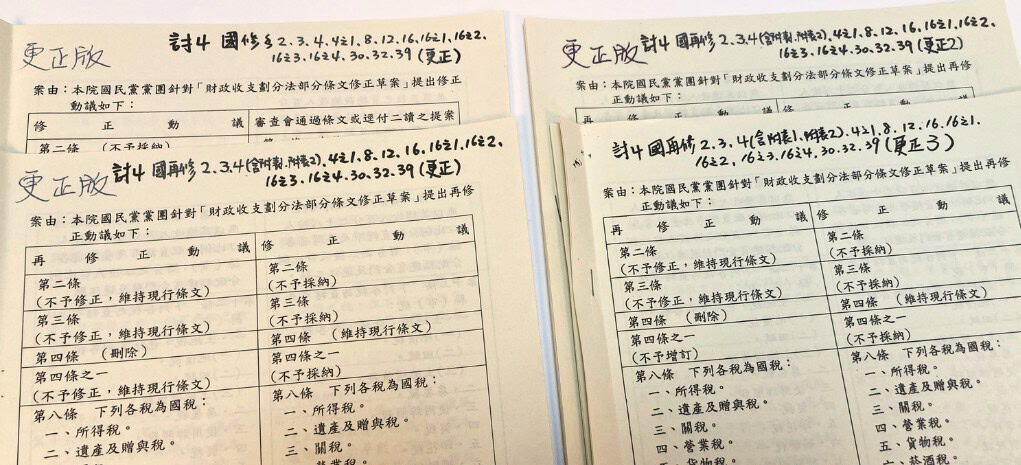 更正版
討4 國修§2.3.4.4之1.8.12.16.16之1.16之2.
16之3.16之4.30.32.39(更正)
案由：本院國民黨黨團針對「財政收支劃分法部分條文修正草案」提出修正
動議如下：
修 正 動 議 審查會通過條文或逕付二讀之提案
第二條 (不予採納)
更正版
討4 國再修2.3.4(含附表1.附表2).4之1.8.12.16.16之1.16之2.
16之3.16之4.30.32.39(更正)
案由：本院國民黨黨團針對「財政收支劃分法部分條文修正草案」提出再修
正動議如下：
再 修 正 動 議 修 正 動 議
第二條
(不予修正，維持現行條文)
第二條
(不予採納)
第三條
(不予修正，維持現行條文)
第三條
(不予採納)
第四條 (刪除)
第四條 (維持現行條文)
第四條之一
(不予修正，維持現行條文)
第四條之一
(不予採納)
第八條 下列各稅為國稅：
一、所得稅。
二、遺產及贈與稅。
第八條 下列各稅為國稅：
一、所得稅。
二、遺產及贈與稅。
三、關稅。
更正版
討4 國再修2.3.4(含附表1.附表2).4之1.8.12.16.16之1.16之2.
16之3.16之4.30.32.39(更正2)
案由：本院國民黨黨團針對「財政收支劃分法部分條文修正草案」提出再修
正動議如下：
討4 國再修2.3.4(含附表1.附表2).4之1.8.12.16.16之1.
16之2.16之3.16之4.30.32.39(更正3)
案由：本院國民黨黨團針對「財政收支劃分法部分條文修正草案」提出再修
正動議如下：
再 修 正 動 議 修 正 動 議
第二條
(不予修正，維持現行條文)
第二條
(不予採納)
第三條
(不予修正，維持現行條文)
第三條
(不予採納)
第四條 (刪除)
第四條 (維持現行條文)
第四條之一
(不予增訂)
第四條之一
(不予採納)
第八條 下列各稅為國稅：
一、所得稅。
二、遺產及贈與稅。
三、關稅。
四、營業稅。
五、貨物稅。
第八條 下列各稅為國稅：
一、所得稅。
二、遺產及贈與稅。
三、關稅。
四、營業稅。
五、貨物稅。
六、菸酒稅。